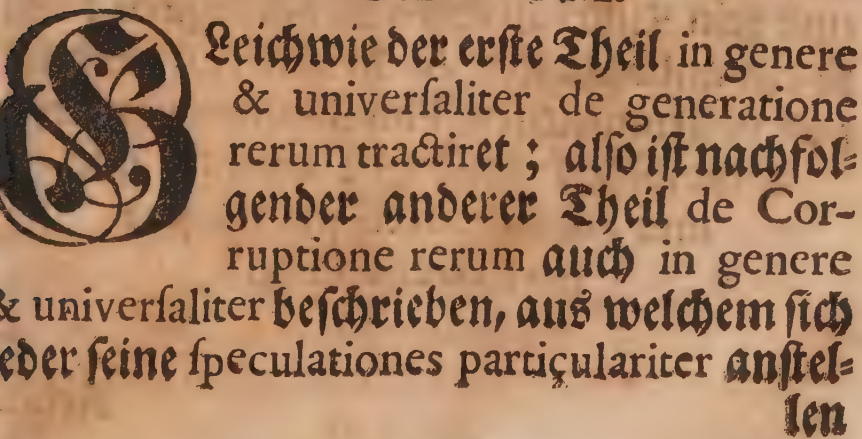 GLeichwie der erſte Theil in genere
& univerſaliter de generatione
rerum tractiret ; alſo iſt nachfol⸗
gender anderer Theil de Cor-
ruptione rerum auch in genere
& univerſaliter beſchrieben, aus welchem ſich
eder ſeine ſpeculationes particulariter anſtel⸗
len